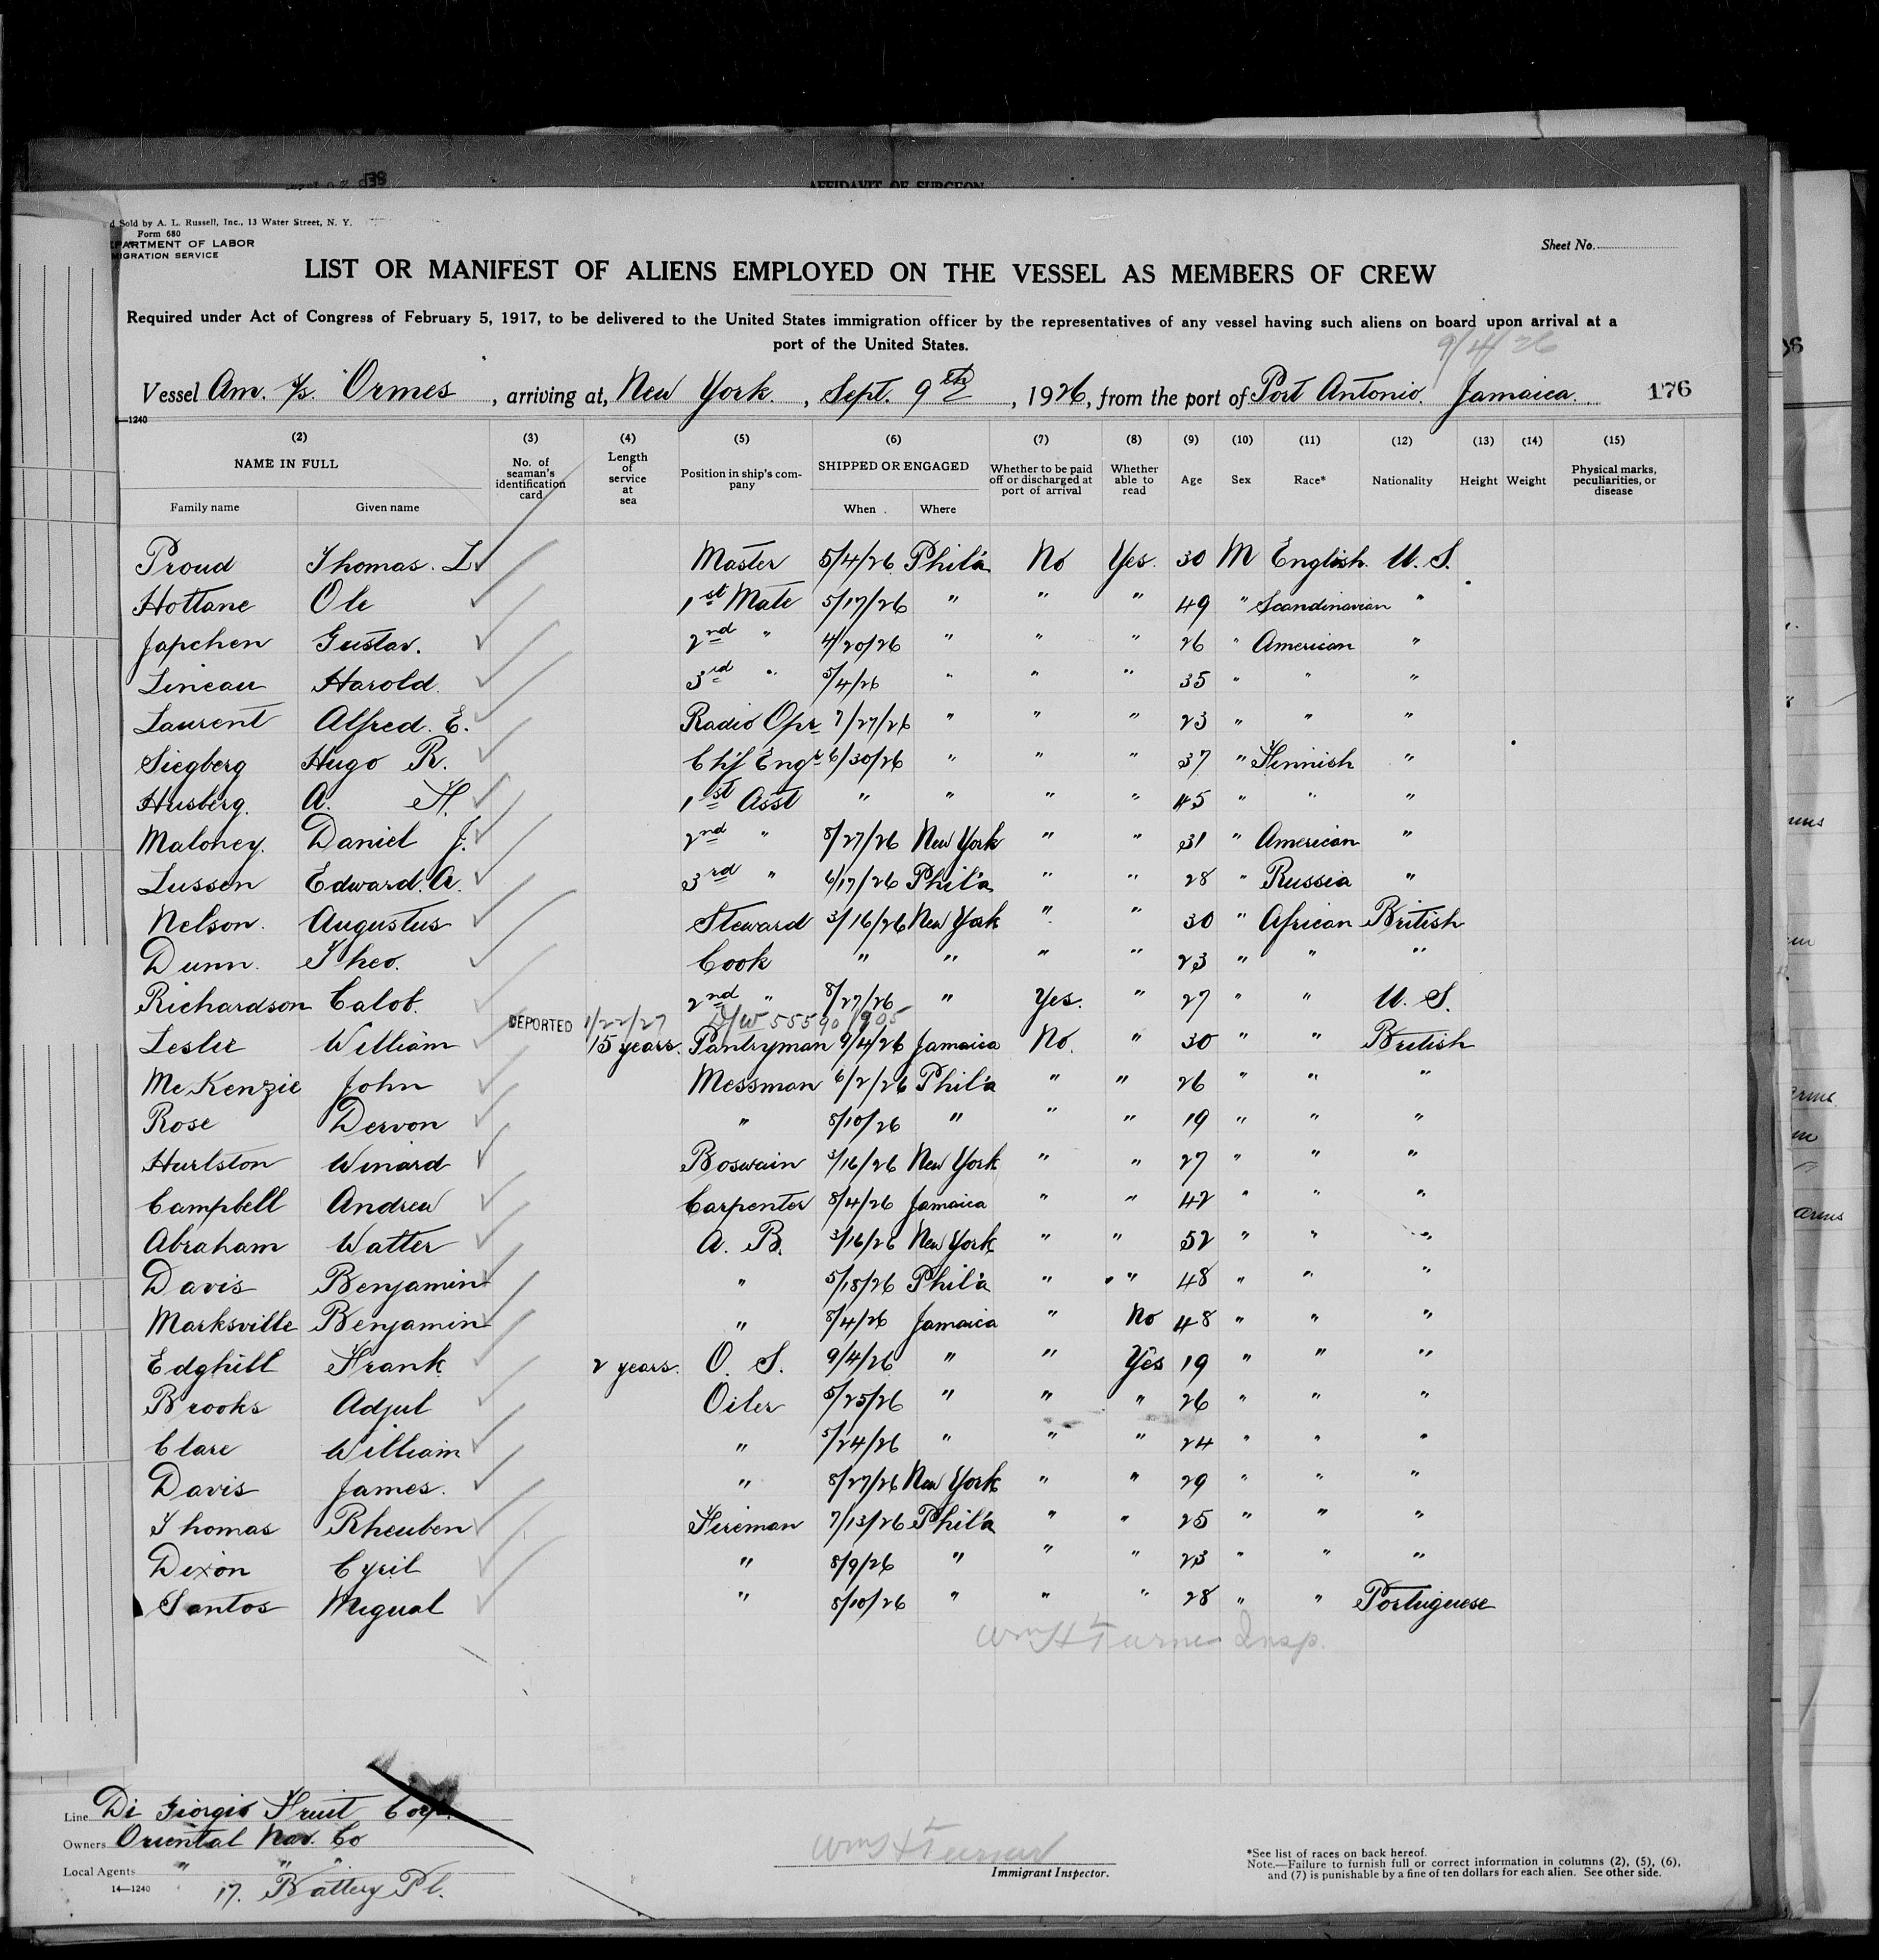 AFFIDAVIT OF SURGEON
d Sold by A. L. Russell, Inc., 13 Water Street, N. Y.
Form 680
PARTMENT OF LABOR
MIGRATION SERVICE
Sheet No.
LIST OR MANIFEST OF ALIENS EMPLOYED ON THE VESSEL AS MEMBERS OF CREW
Required under Act of Congress of February 5, 1917, to be delivered to the United States immigration officer by the representatives of any vessel having such aliens on board upon arrival at a
port of the United States.
9/4/26
Vessel Am. S/s. "Ormes", arriving at, New York., Sept. 9th, 1926, from the port of Port Antonio. Jamaica. 176
14-1240
(2) (3) (4) (5) (6) (7) (8) (9) (10) (11) (12) (13) (14) (15)
NAME IN FULL No. of seaman's identification card Length of service at sea Position in ship's company SHIPPED OR ENGAGED Whether to be paid off or discharged at port of arrival Whether able to read Age Sex Race* Nationality Height Weight Physical marks, peculiarities, or disease
Family name Given name When Where
Proud Thomas. L Master 5/4/26 Phil'a No Yes. 30 M English. U. S.
Hottane Ole 1st Mate 5/17/26 " " " 49 " Scandinavian "
Japchen Gustav. 2nd " 4/20/26 " " " 26 " American "
Lineau Harold. 3rd " 5/4/26 " " " 35 " " "
Laurent Alfred. E. Radio Opr 7/27/26 " " " 23 " " "
Siegberg Hugo R. Chif Engr 6/30/26 " " " 37 " Finnish "
Husberg. A. H. 1st Asst " " " " 45 " " "
Maloney. Daniel J. 2nd " 8/27/26 New York " " 31 " American "
Lussen Edward. A. 3rd " 6/17/26 Phil'a " " 28 " Russia "
Nelson. Augustus Steward 3/16/26 New York " " 30 " African British
Dunn. Theo. Cook " " " " 23 " " "
Richardson Calob. 2nd " 8/27/26 " Yes. " 27 " " U. S.
DEPORTED 1/22/27 D/W 55590/905
Leslie William 15 years. Pantryman 9/4/26 Jamaica No. " 30 " " British
McKenzie John Messman 6/2/26 Phil'a " " 26 " " "
Rose Dervon " 8/10/26 " " " 19 " " "
Hurlston Winard Boswain 3/16/26 New York " " 27 " " "
Campbell Andrew Carpenter 8/4/26 Jamaica " " 42 " " "
Abraham Watter A. B. 3/16/26 New York " " 52 " " "
Davis Benjamin " 5/18/26 Phil'a " " 48 " " "
Marksville Benjamin " 8/4/26 Jamaica " No 48 " " "
Edghill Frank 2 years. O. S. 9/4/26 " " Yes 19 " " "
Brooks Adjul Oiler 5/25/26 " " " 26 " " "
Clare William " 5/24/26 " " " 24 " " "
Davis James. " 8/27/26 New York " " 29 " " "
Thomas Rheuben Fireman 7/13/26 Phil'a " " 25 " " "
Dixon Cyril " 8/9/26 " " " 23 " " "
Santos Migual " 8/10/26 " " " 28 " " Portuguese
Wm H Turner Insp.
Line Di Giorgio Fruit Corp.
Owners Oriental Nav. Co
Local Agents " " "
14-1240 17. Battery Pl.
Wm H Turner
Immigrant Inspector.
*See list of races on back hereof.
Note.—Failure to furnish full or correct information in columns (2), (5), (6),
and (7) is punishable by a fine of ten dollars for each alien. See other side.